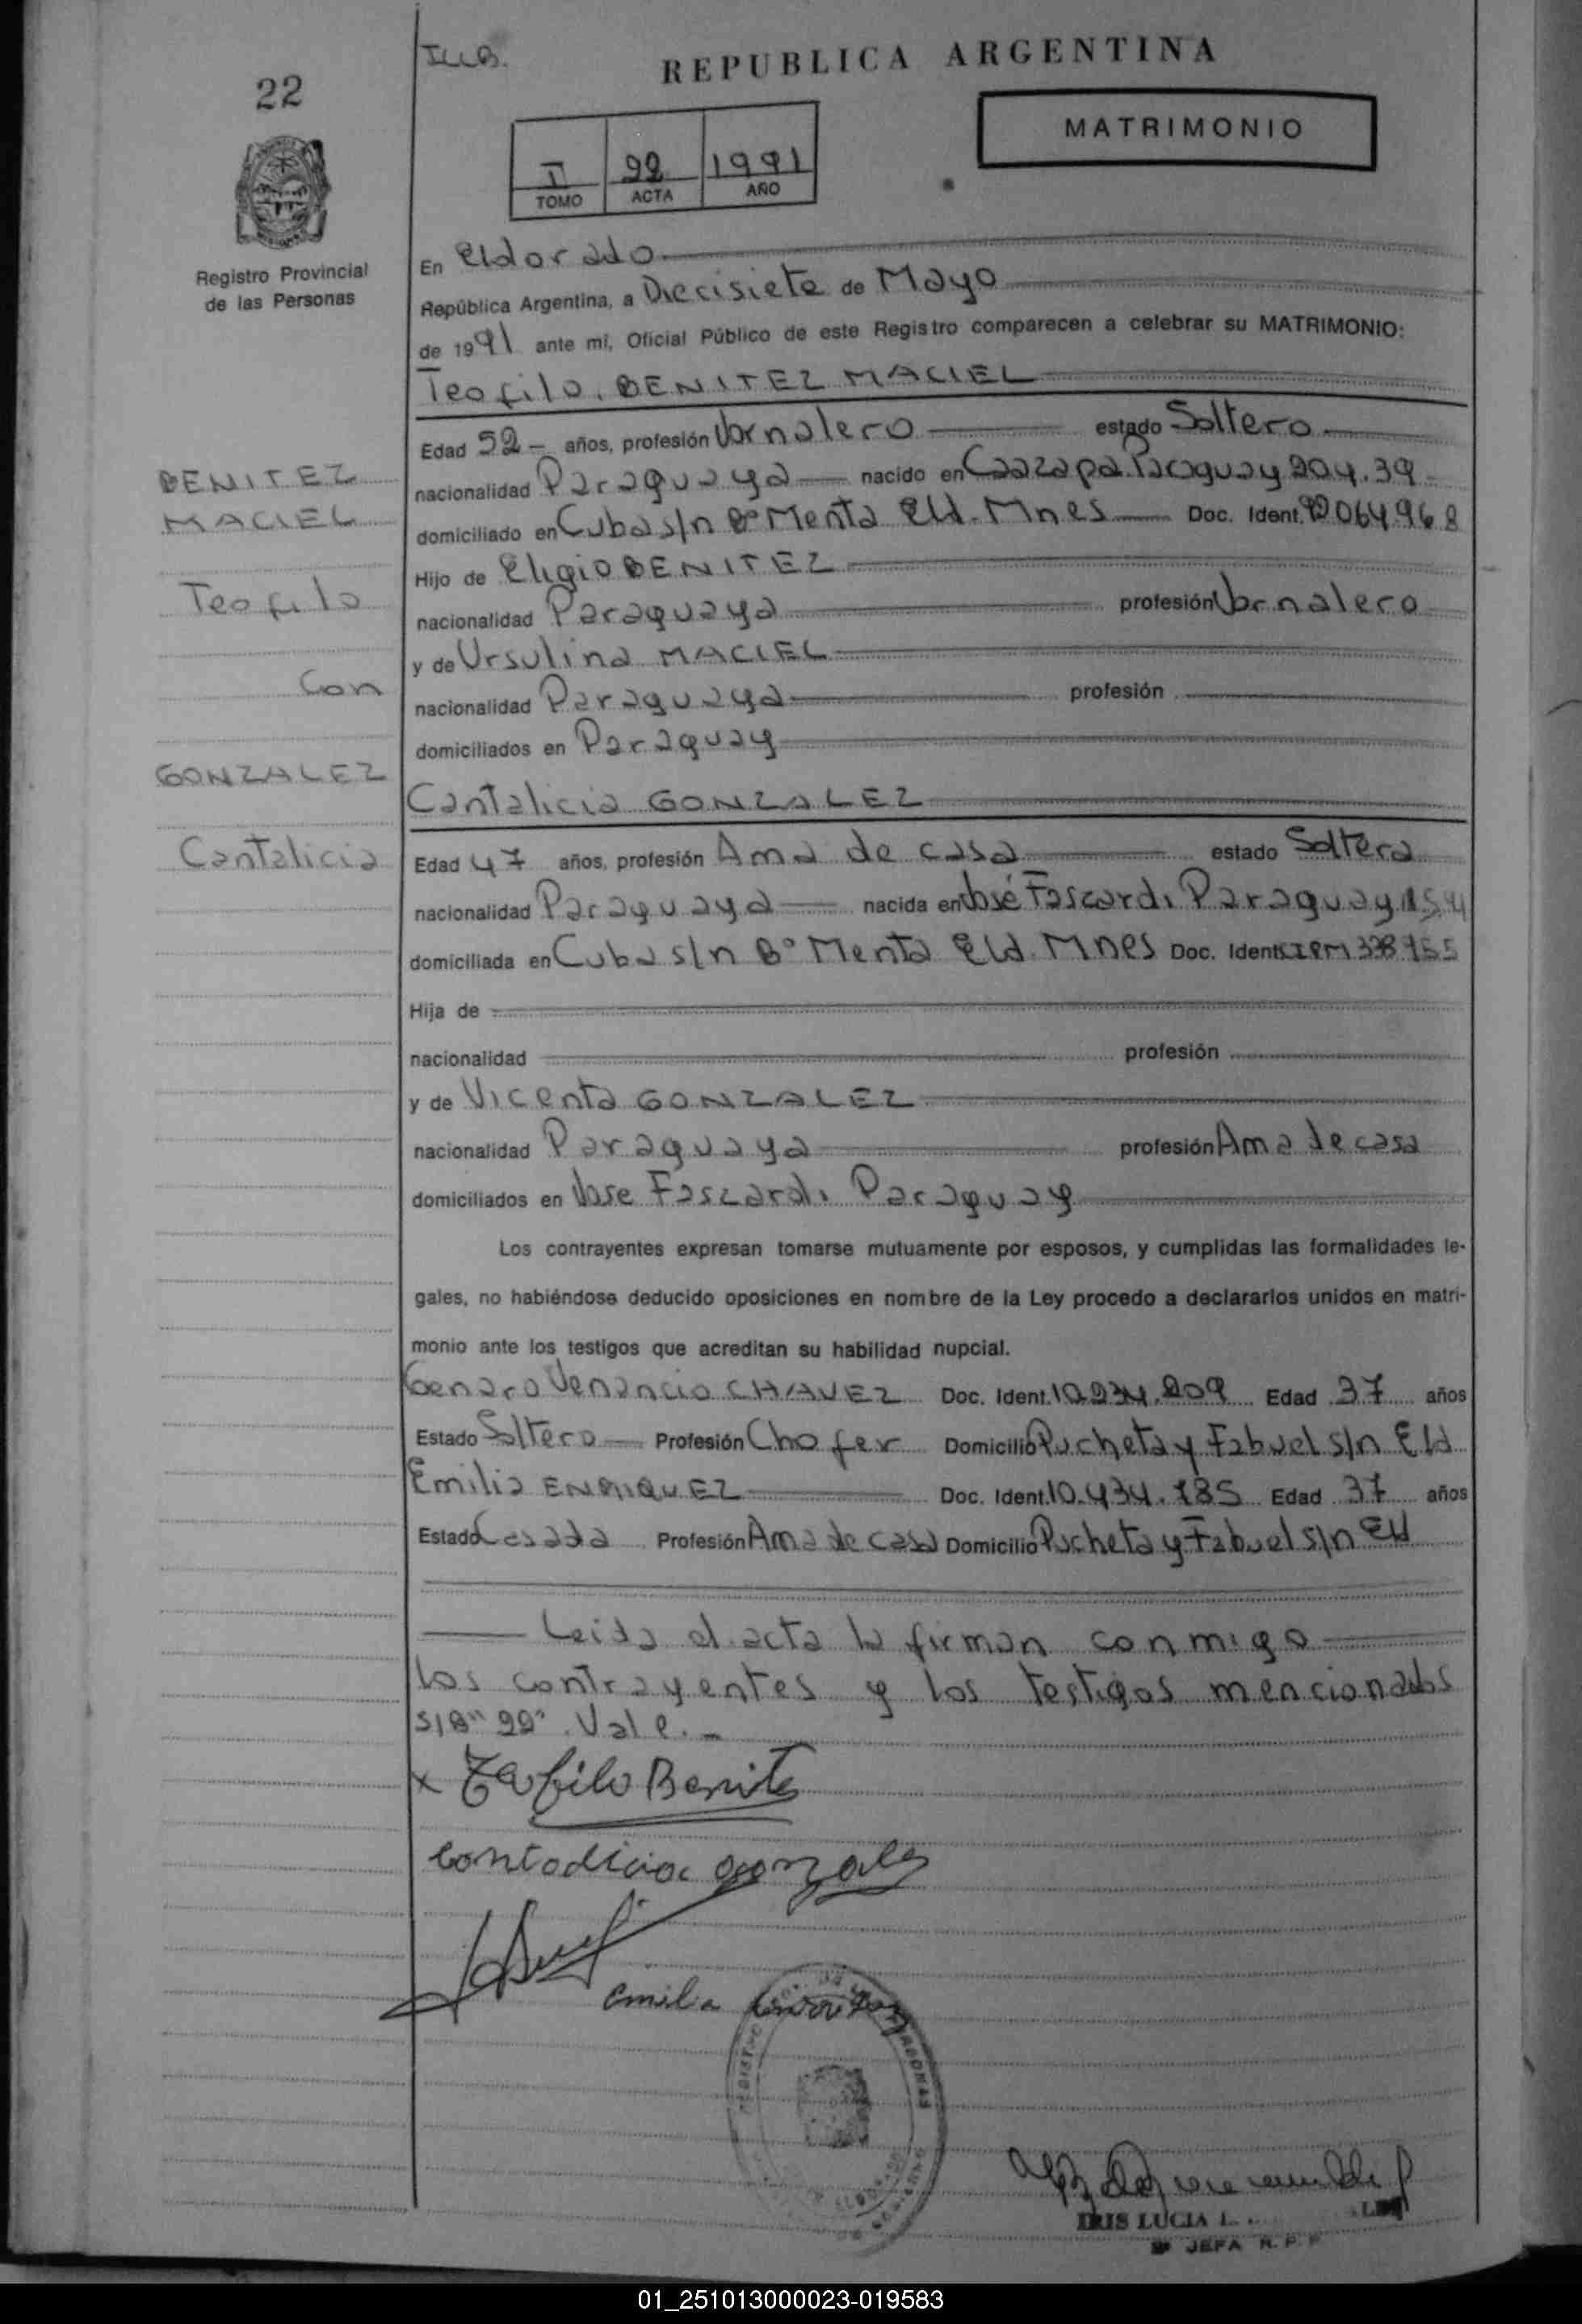 ILLB.
REPUBLICA ARGENTINA
22
MATRIMONIO
I 22 1991
TOMO ACTA AÑO
Registro Provincial
de las Personas
En Eldorado
República Argentina, a Diecisiete de Mayo
de 1991 ante mí, Oficial Público de este Registro comparecen a celebrar su MATRIMONIO:
Teofilo. BENITEZ MACIEL
Edad 52 - años, profesión Jornalero estado Soltero
nacionalidad Paraguaya nacido en Caazapa. Paraguay 204.39
domiciliado en Cuba s/n Bº Menta Eld. Mnes Doc. Ident. 92064.968
Hijo de Eligio BENITEZ
nacionalidad Paraguaya profesión Jornalero
y de Ursulina MACIEL
nacionalidad Paraguaya profesión
domiciliados en Paraguay
BENITEZ
MACIEL
Teofilo
Con
GONZALEZ
Cantalicia
Cantalicia GONZALEZ
Edad 47 años, profesión Ama de casa estado Soltera
nacionalidad Paraguaya nacida en José Fascardi Paraguay
domiciliada en Cuba s/n Bº Menta Eld. Mnes Doc. Ident. CIPM 338.755
Hija de
nacionalidad profesión
y de Vicenta GONZALEZ
nacionalidad Paraguaya profesión Ama de casa
domiciliados en Jose Fascardi Paraguay
Los contrayentes expresan tomarse mutuamente por esposos, y cumplidas las formalidades le-
gales, no habiéndose deducido oposiciones en nombre de la Ley procedo a declararlos unidos en matri-
monio ante los testigos que acreditan su habilidad nupcial.
Genaro Venancio CHAVEZ Doc. Ident. 10.234.209 Edad 37 años
Estado Soltero Profesión Chofer Domicilio Pucheta y Fabuel s/n Eld
Emilia ENRIQUEZ Doc. Ident. 10.434.785 Edad 37 años
Estado Casada Profesión Ama de casa Domicilio Pucheta y Fabuel s/n Eld
Leida el acta la firman conmigo
los contrayentes y los testigos mencionados
S/B "92" . Vale. -
x Teofilo Benites
Contadicia gonzales
emilia
IRIS LUCIA L.
JEFA R. P. P
01_251013000023-019583